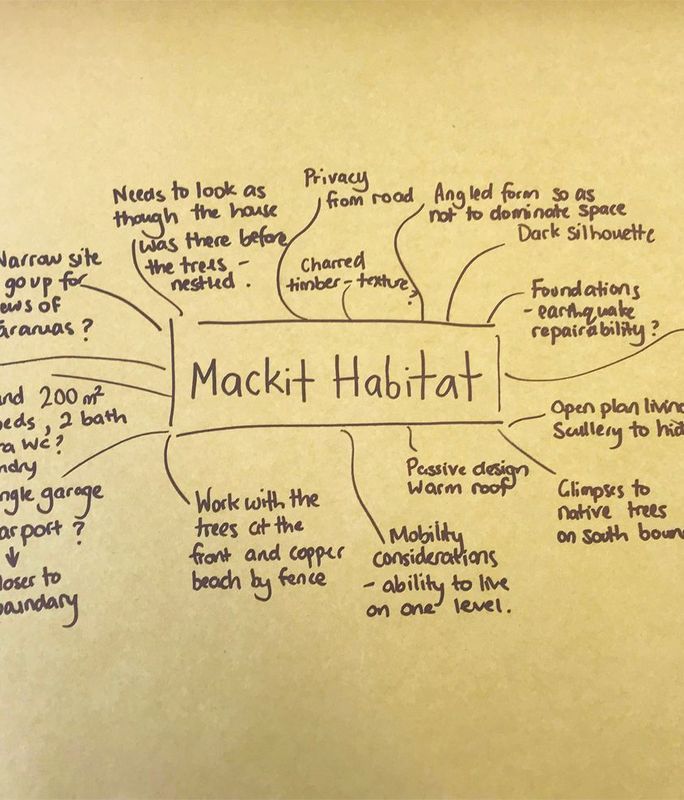 Needs to look as
though the house
was there before
the trees -
nestled .
Privacy
from road
Charred
timber - texture?
Angled form so as
not to dominate space
Dark silhouette
Foundations
- earthquake
repairability ?
Narrow site
go up for
ews of
araruas ?
Mackit Habitat
nd 200 m²
eds , 2 bath
a WC?
ndry
ngle garage
arport ?
↓
loser to
oundary
Work with the
trees at the
front and copper
beach by fence
Mobility
considerations
- ability to live
on one level.
Passive design
Warm roof
Open plan livin
Scullery to hid
Glimpses to
native trees
on south boun